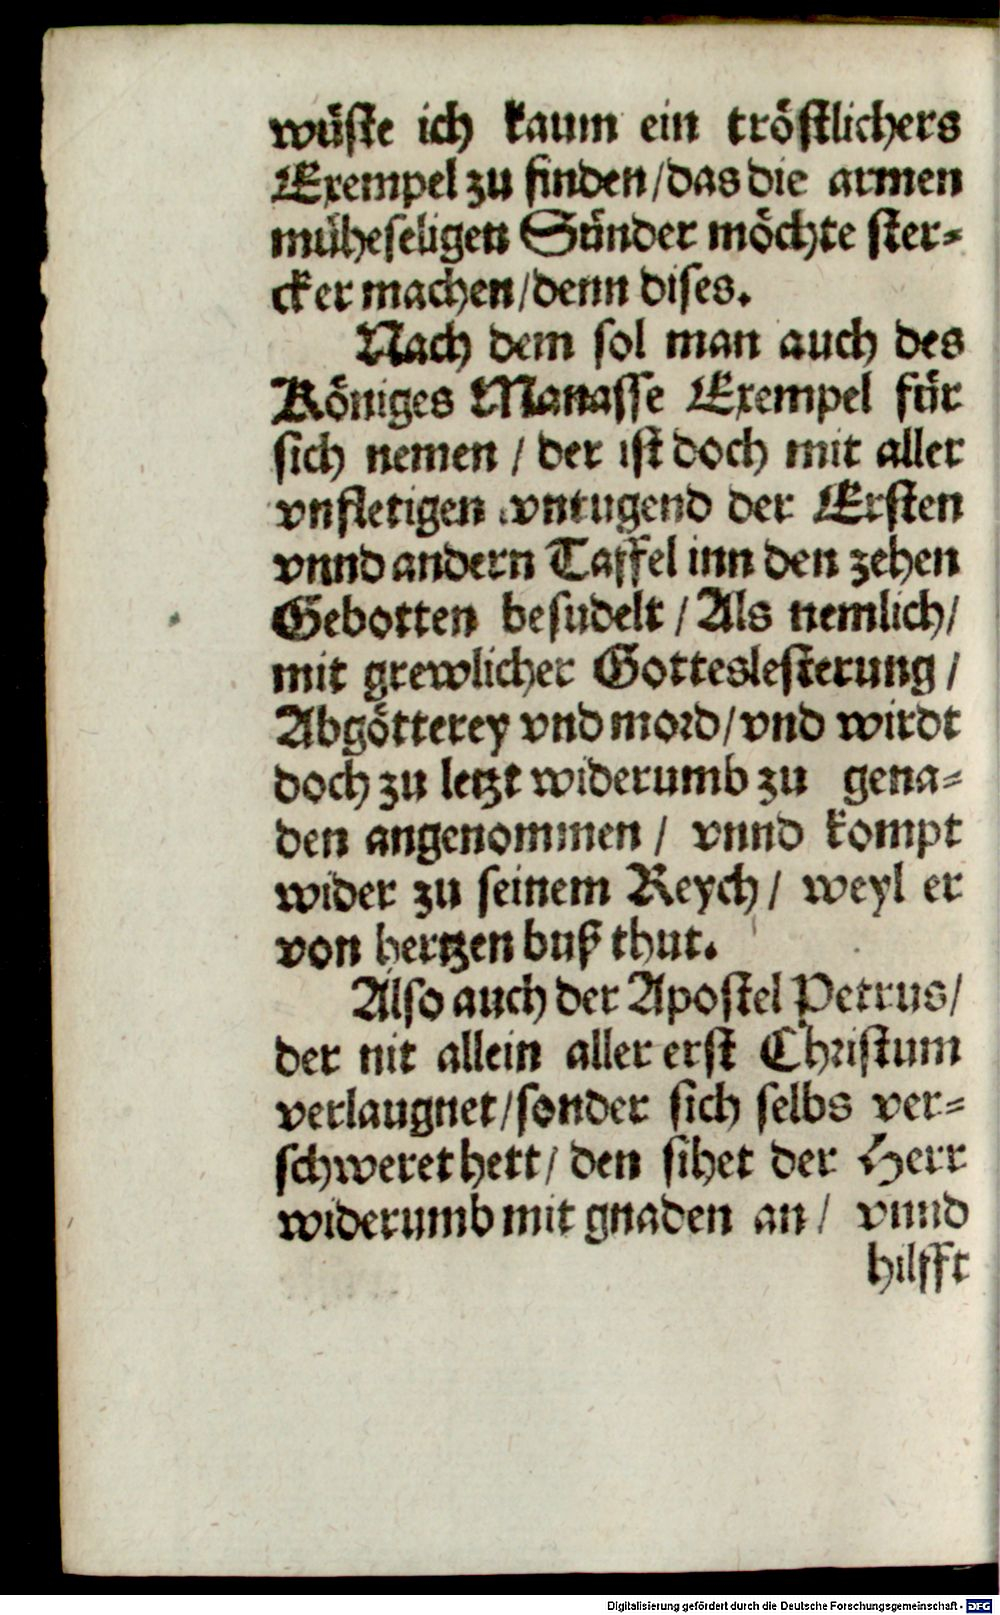 wuͤste ich kaum ein troͤstlichers
Exempel zu finden/das die armen
muͤheseligen Suͤnder moͤchte ster-
cker machen/denn dises.
Nach dem sol man auch des
Koͤniges Manasse Exempel fuͤr
sich nemen / der ist doch mit aller
vnfletigen vntugend der Ersten
vnnd andern Taffel inn den zehen
Gebotten besudelt / Als nemlich/
mit grewlicher Gotteslesterung /
Abgoͤtterey vnd mord/vnd wirdt
doch zu letzt widerumb zu gena-
den angenommen / vnnd kompt
wider zu seinem Reych/ weyl er
von hertzen buß thut.
Also auch der Apostel Petrus/
der nit allein aller erst Christum
verlaugnet/sonder sich selbs ver-
schweret hett/ den sihet der Herr
widerumb mit gnaden an/ vnnd
hilfft
Digitalisierung gefördert durch die Deutsche Forschungsgemeinschaft - DFG